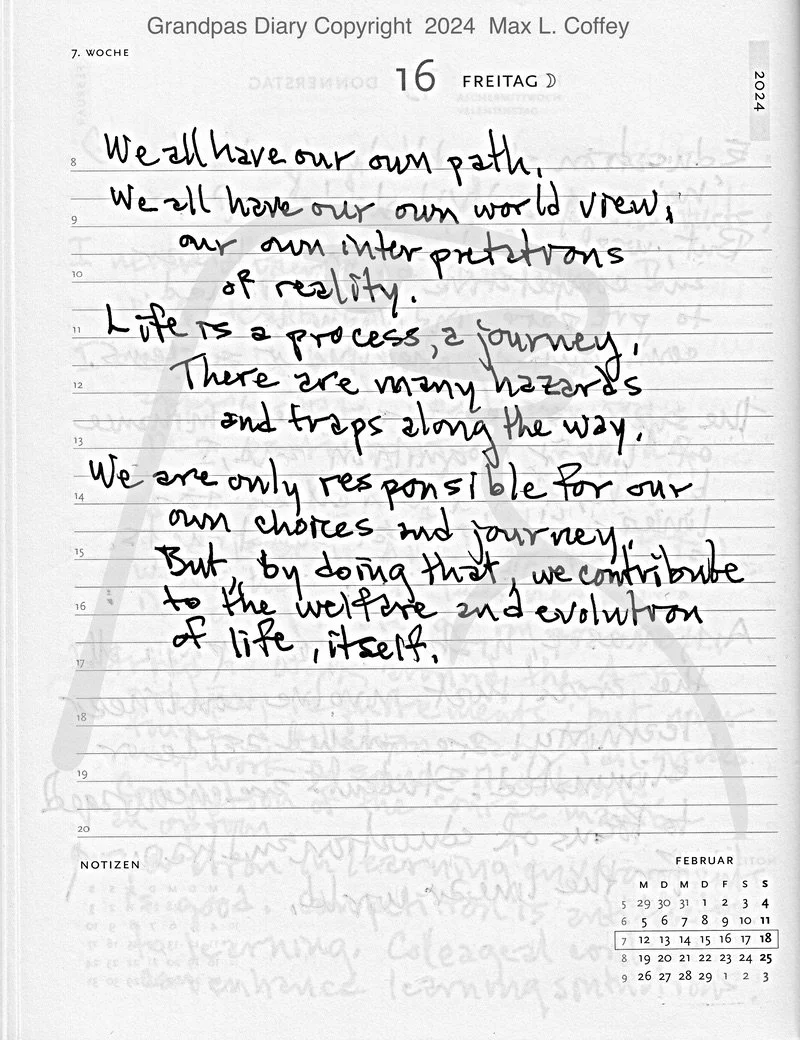 Grandpas Diary Copyright 2024 Max L. Coffey
7. WOCHE
16 FREITAG
2024
8 We all have our own path.
We all have our own world view,
9
our own interpretations
10
of reality.
11 Life is a process, a journey.
There are many hazards
12
and traps along the way.
13
We are only responsible for our
14
own choices and journey.
15
But, by doing that, we contribute
16 to the welfare and evolution
of life, itself.
17
18
19
20
NOTIZEN
FEBRUAR
M D M D F S S
5 29 30 31 1 2 3 4
6 5 6 7 8 9 10 11
7 12 13 14 15 16 17 18
8 19 20 21 22 23 24 25
9 26 27 28 29 1 2 3